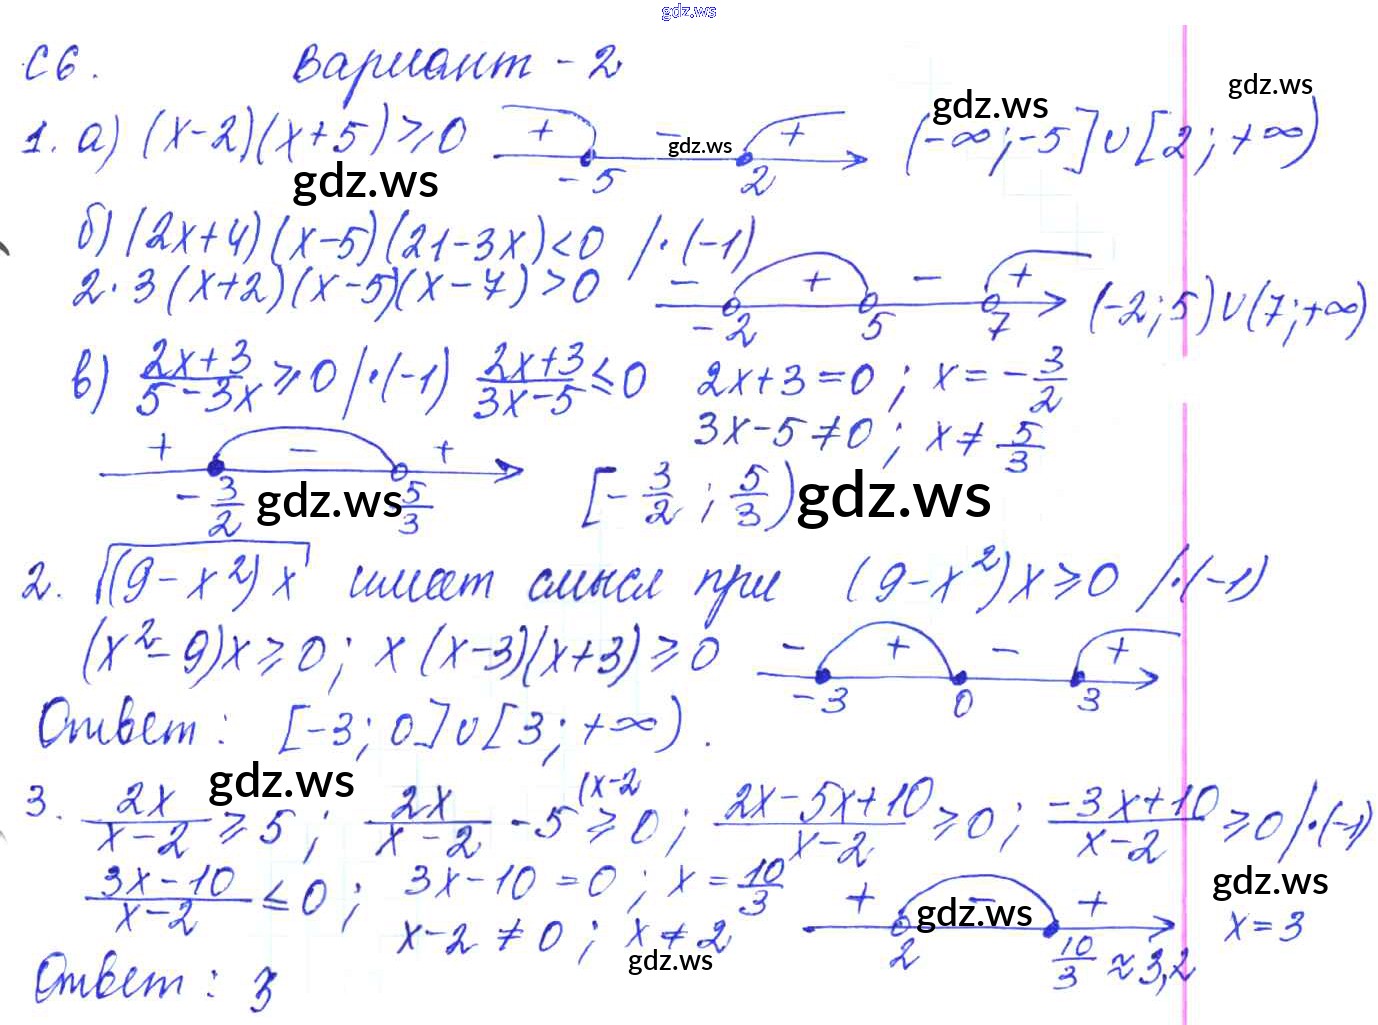 gdz.ws
С6. Вариант - 2
gdz.ws
1. а) (x-2)(x+5)≥0 + - + -5 2 (-∞;-5]∪[2;+∞)
gdz.ws gdz.ws gdz.ws
б) (2x+4)(x-5)(21-3x)<0 /·(-1)
2·3(x+2)(x-5)(x-7)>0 - + - + -2 5 7 (-2;5)∪(7;+∞)
в) (2x+3)/(5-3x) ≥0 /·(-1) (2x+3)/(3x-5) ≤0 2x+3=0; x=-3/2
3x-5≠0; x≠5/3
+ - + -3/2 5/3 [-3/2; 5/3)
gdz.ws gdz.ws
2. √((9-x²)x) имеет смысл при (9-x²)x≥0 /·(-1)
(x²-9)x≥0; x(x-3)(x+3)≥0 - + - + -3 0 3
Ответ: [-3;0]∪[3;+∞).
gdz.ws
3. 2x/(x-2) ≥5; 2x/(x-2) -5 (x-2 ≥0; (2x-5x+10)/(x-2) ≥0; (-3x+10)/(x-2) ≥0 /·(-1)
(3x-10)/(x-2) ≤0; 3x-10=0; x=10/3 + - + 2 10/3 ≈3,2 x=3
x-2≠0; x≠2
gdz.ws gdz.ws gdz.ws
Ответ: 3